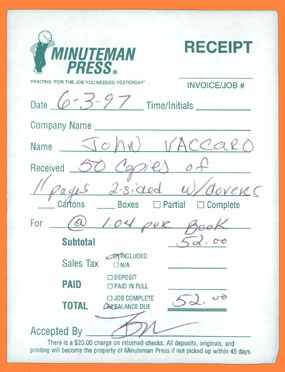 MINUTEMAN
PRESS®
RECEIPT
PRINTING "FOR THE JOB YOU NEEDED YESTERDAY"
INVOICE/JOB #
Date 6-3-97 Time/Initials
Company Name
Name JOHN VACCARO
Received 50 Copies of
11 pages 2-sided w/covers
Cartons Boxes ☐ Partial ☐ Complete
For @ 1.04 per Book
Subtotal 52.00
Sales Tax INCLUDED
☐ N/A
PAID ☐ DEPOSIT
☐ PAID IN FULL
☐ JOB COMPLETE
TOTAL BALANCE DUE 52.00
Accepted By
There is a $20.00 charge on returned checks. All deposits, originals, and
printing will become the property of Minuteman Press if not picked up within 45 days.